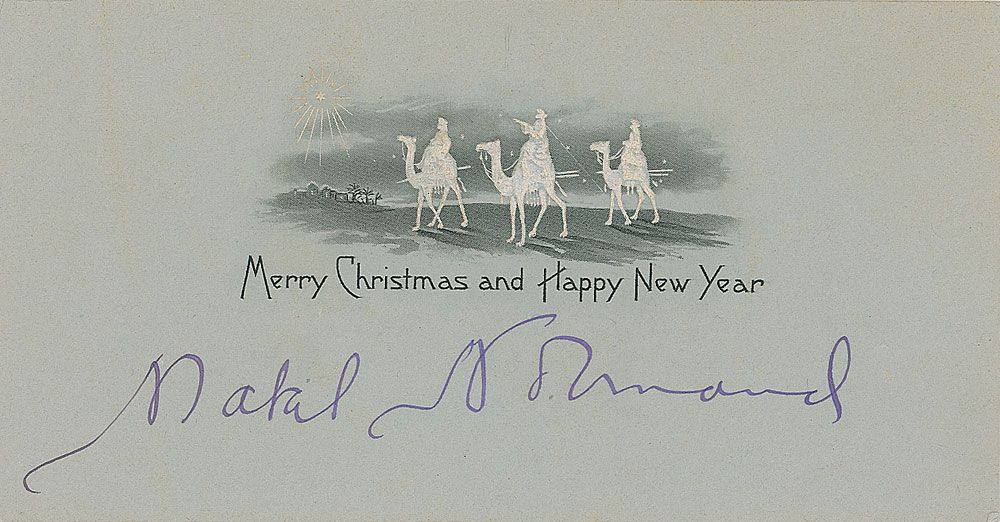 Merry Christmas and Happy New Year
Mabel Normand